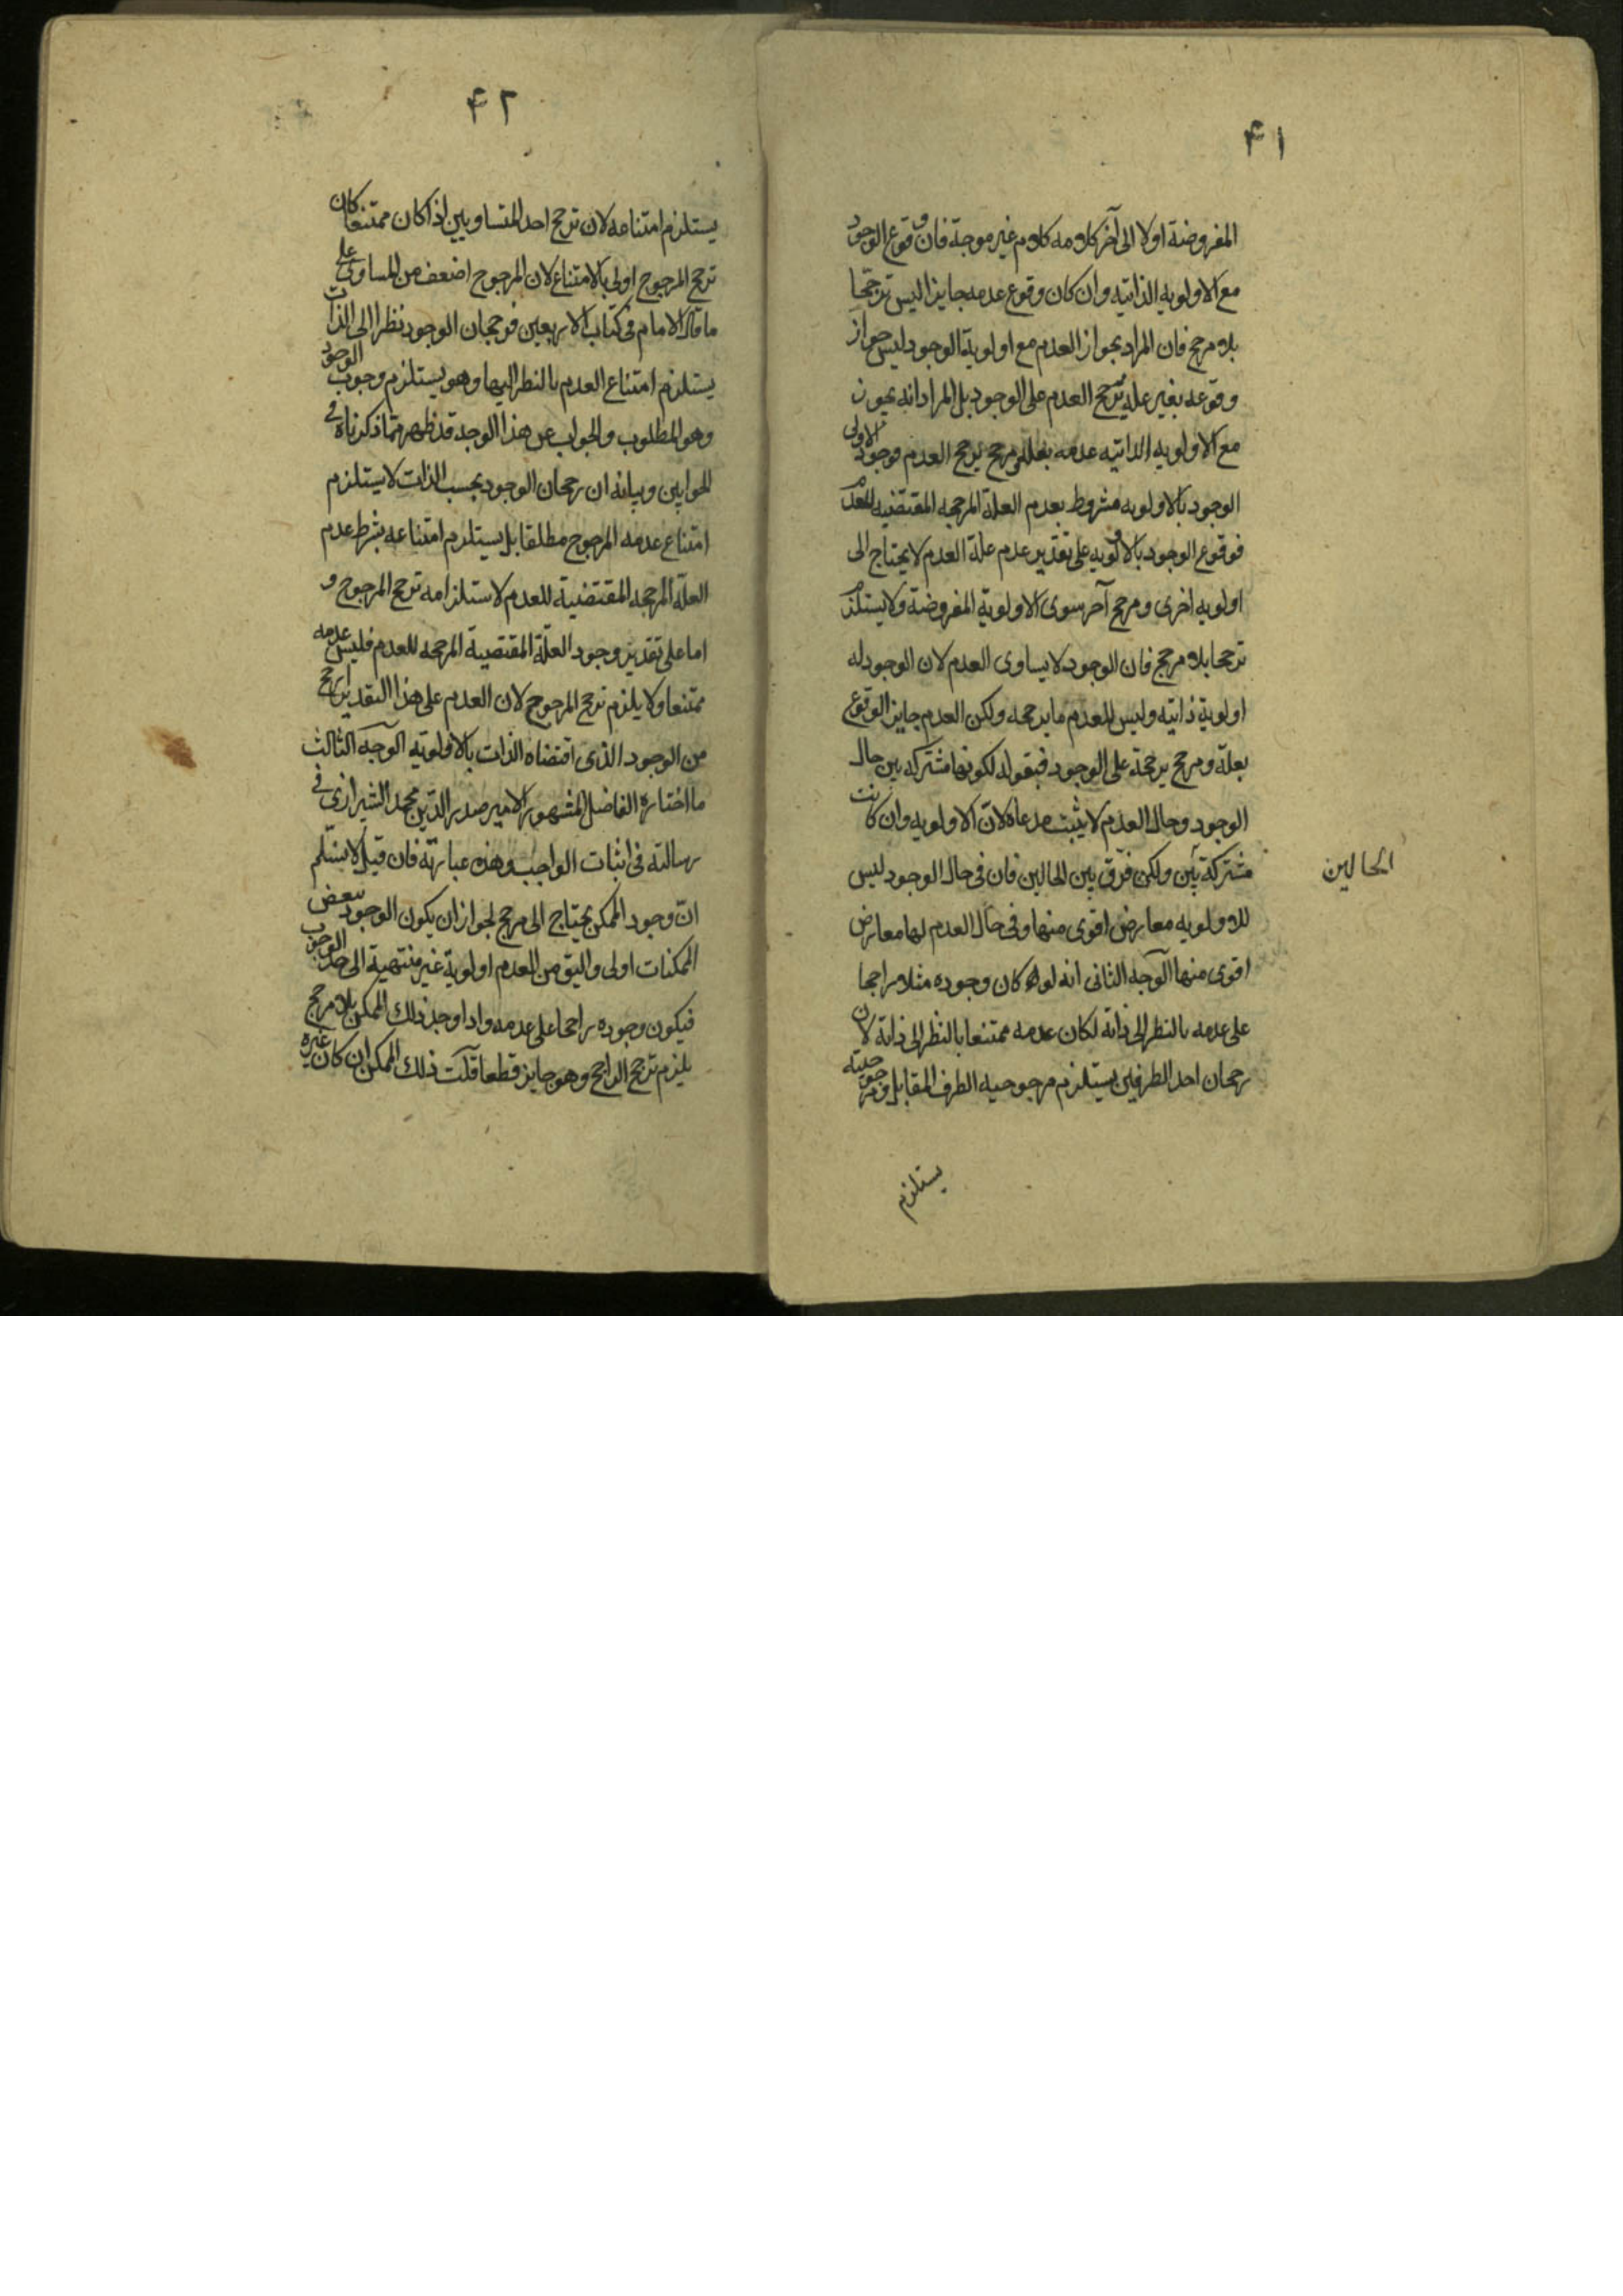 ۴۱
المفروضة اولا الى آخر كلامه كلام غير موجة فان وقوع الوجود
مع الاولويه الذاتيه وان كان وقوع عدمه جايزا ليس ترجحا
بلا مرجح فان المراد بجواز العدم مع اولوية الوجود ليس جواز
وقوعه بغير علة ترجح العدم على الوجود بل المراد انه يجوز
مع الاولويه الذاتيه عدمه بعلة ومرجح يرجح العدم فوجود الاولى
الوجود بالاولويه مشروط بعدم العلة المرجحه المقتضيه للعدم
فوقوع الوجود بالاولويه على تقدير عدم علة العدم لا يحتاج الى
اولويه اخرى ومرجح آخر سوى الاولوية المفروضة ولا يستلزم
ترجحا بلا مرجح فان الوجود لا يساوى العدم لان الوجود له
اولوية ذاتيه وليس للعدم ما يرجحه ولكن العدم جايز الوقوع
بعلة ومرجح يرجحة على الوجود فبقوله لكونها مشتركه بين حال
الوجود وحال العدم لا يثبت مدعاه لان الاولويه وان كانت
مشتركة بين ولكن فرق بين الحالين فان فى حال الوجود ليس
الحالين
للاولويه معارض اقوى منها وفى حال العدم لها معارض
اقوى منها الوجه الثانى انه لو كان وجوده مثلا راجحا
على عدمه بالنظر الى ذاته لكان عدمه ممتنعا بالنظر الى ذاتة لان
رجحان احد الطرفين يستلزم مرجوحيه الطرف المقابل ومرجوحيته
يستلزم
۴۲
يستلزم امتناعه لان ترجح احد المتساويين اذا كان ممتنعا كان
ترجح المرجوح اولى بالامتناع لان المرجوح اضعف من المساوى على
ما قال الامام فى كتاب الاربعين فرجحان الوجود نظرا الى الذات
يستلزم امتناع العدم بالنظر اليها وهو يستلزم وجوب الوجود
وهو المطلوب والجواب عن هذا الوجه قد ظهر مما ذكرناه فى
الجوابين وبيانه ان رجحان الوجود بحسب الذات لا يستلزم
امتناع عدمه المرجوح مطلقا بل يستلزم امتناعه بشرط عدم
العلة المرجحه المقتضية للعدم لاستلزامه ترجح المرجوح و
اما على تقدير وجود العلة المقتضية المرجحه للعدم فليس عدمه
ممتنعا ولا يلزم ترجح المرجوح لان العدم على هذا التقدير ارجح
من الوجود الذى اقتضاه الذات بالاولويه الوجه الثالث
ما اختاره الفاضل المشهور الامير صدر الدين محمد الشيرازى فى
رسالته فى اثبات الواجب وهذه عبارته فان قيل لا نسلم
ان وجود الممكن يحتاج الى مرجح لجواز ان يكون الوجود ببعض
الممكنات اولى واليق من العدم اولوية غير منتهية الى حد الوجوب
فيكون وجوده راجحا على عدمه واذا وجد ذلك الممكن بلا مرجح
يلزم ترجح الراجح وهو جايز قطعا قلت ذلك الممكن ان كان غيره